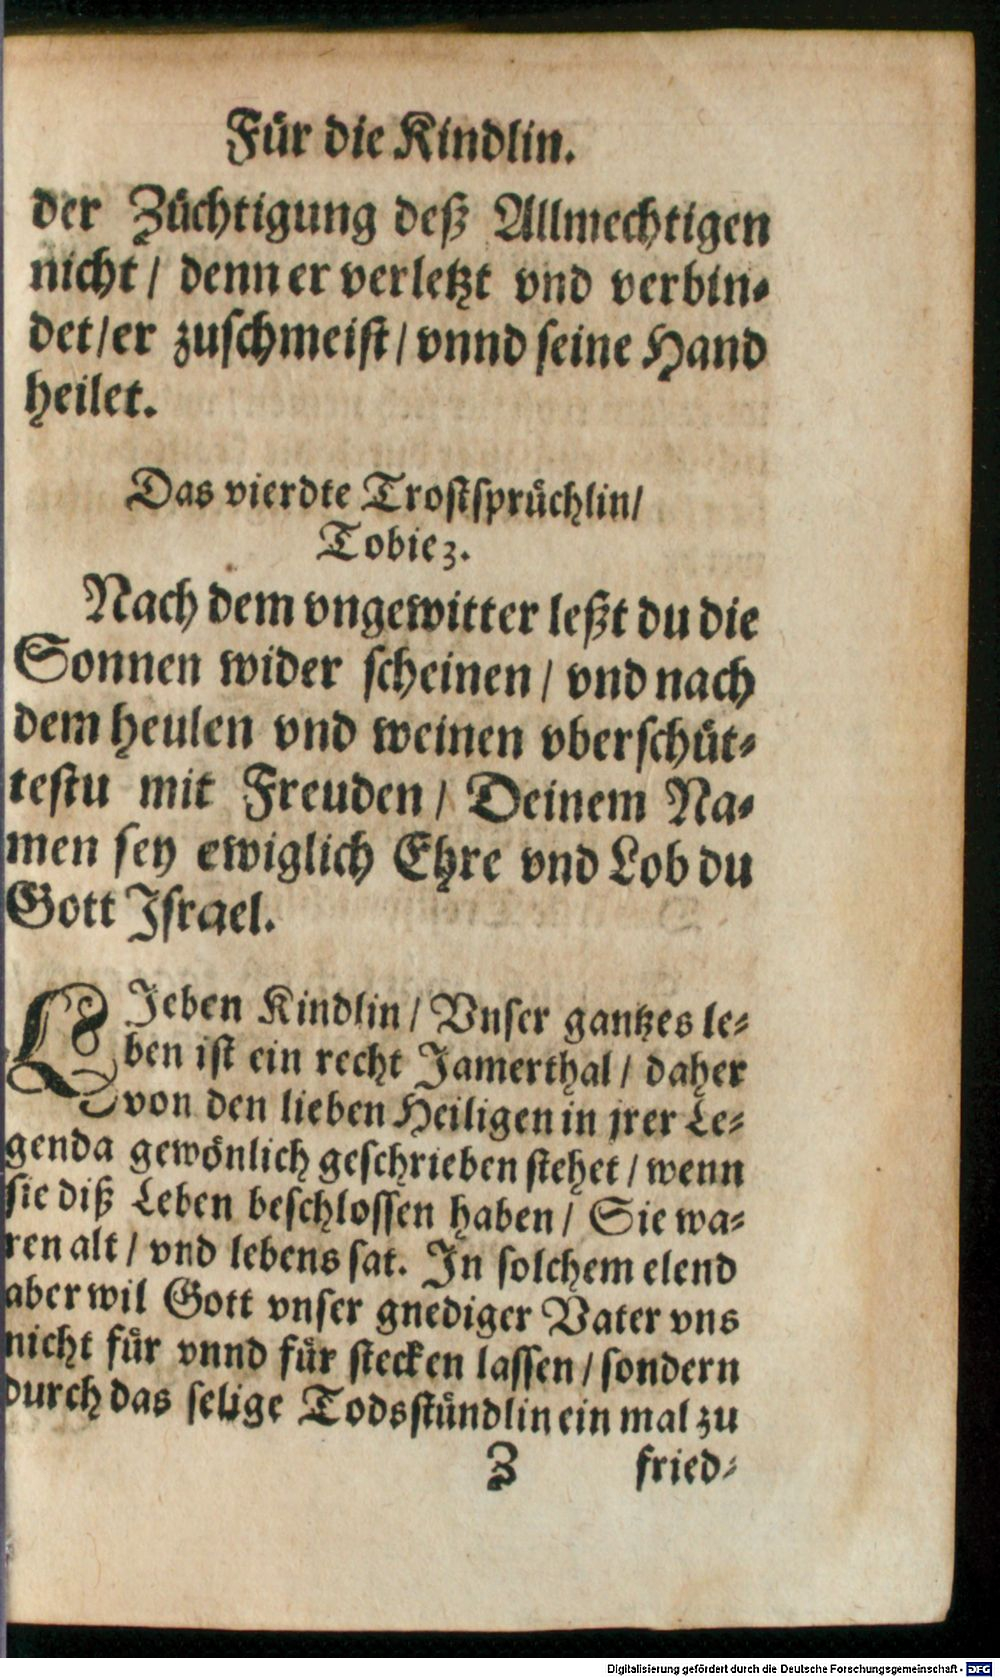 Für die Kindlin.
der Züchtigung deß Allmechtigen
nicht / denn er verletzt vnd verbin-
det / er zuschmeist / vnnd seine Hand
heilet.
Das vierdte Trostsprüchlin /
Tobie 3.
Nach dem vngewitter leßt du die
Sonnen wider scheinen / vnd nach
dem heulen vnd weinen vberschüt-
testu mit Freuden / Deinem Na-
men sey ewiglich Ehre vnd Lob du
Gott Israel.
LIeben Kindlin / Vnser gantzes le-
ben ist ein recht Jamerthal / daher
von den lieben Heiligen in jrer Le-
genda gewönlich geschrieben stehet / wenn
sie diß Leben beschlossen haben / Sie wa-
ren alt / vnd lebens sat. In solchem elend
aber wil Gott vnser gnediger Vater vns
nicht für vnnd für stecken lassen / sondern
durch das selige Todsstündlin ein mal zu
Z fried-
Digitalisierung gefördert durch die Deutsche Forschungsgemeinschaft - DFG